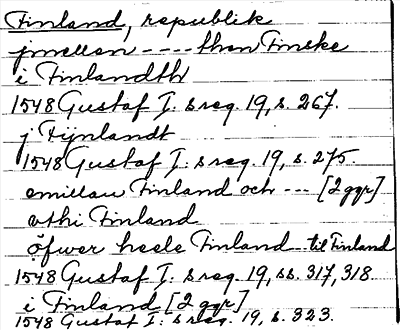 Finland, republik
jmellan ---- then Finske
i Finlandth
1548 Gustaf I: s reg. 19, s. 267.
j Fijnlandt
1548 Gustaf I: s reg. 19, s. 275.
emillan Finland och --- [2 ggr]
uthi Finland
öfwer heele Finland til Finland
1548 Gustaf I: s reg. 19, ss. 317, 318.
i Finland [2 ggr]
1548 Gustaf I: s reg. 19, s. 323.